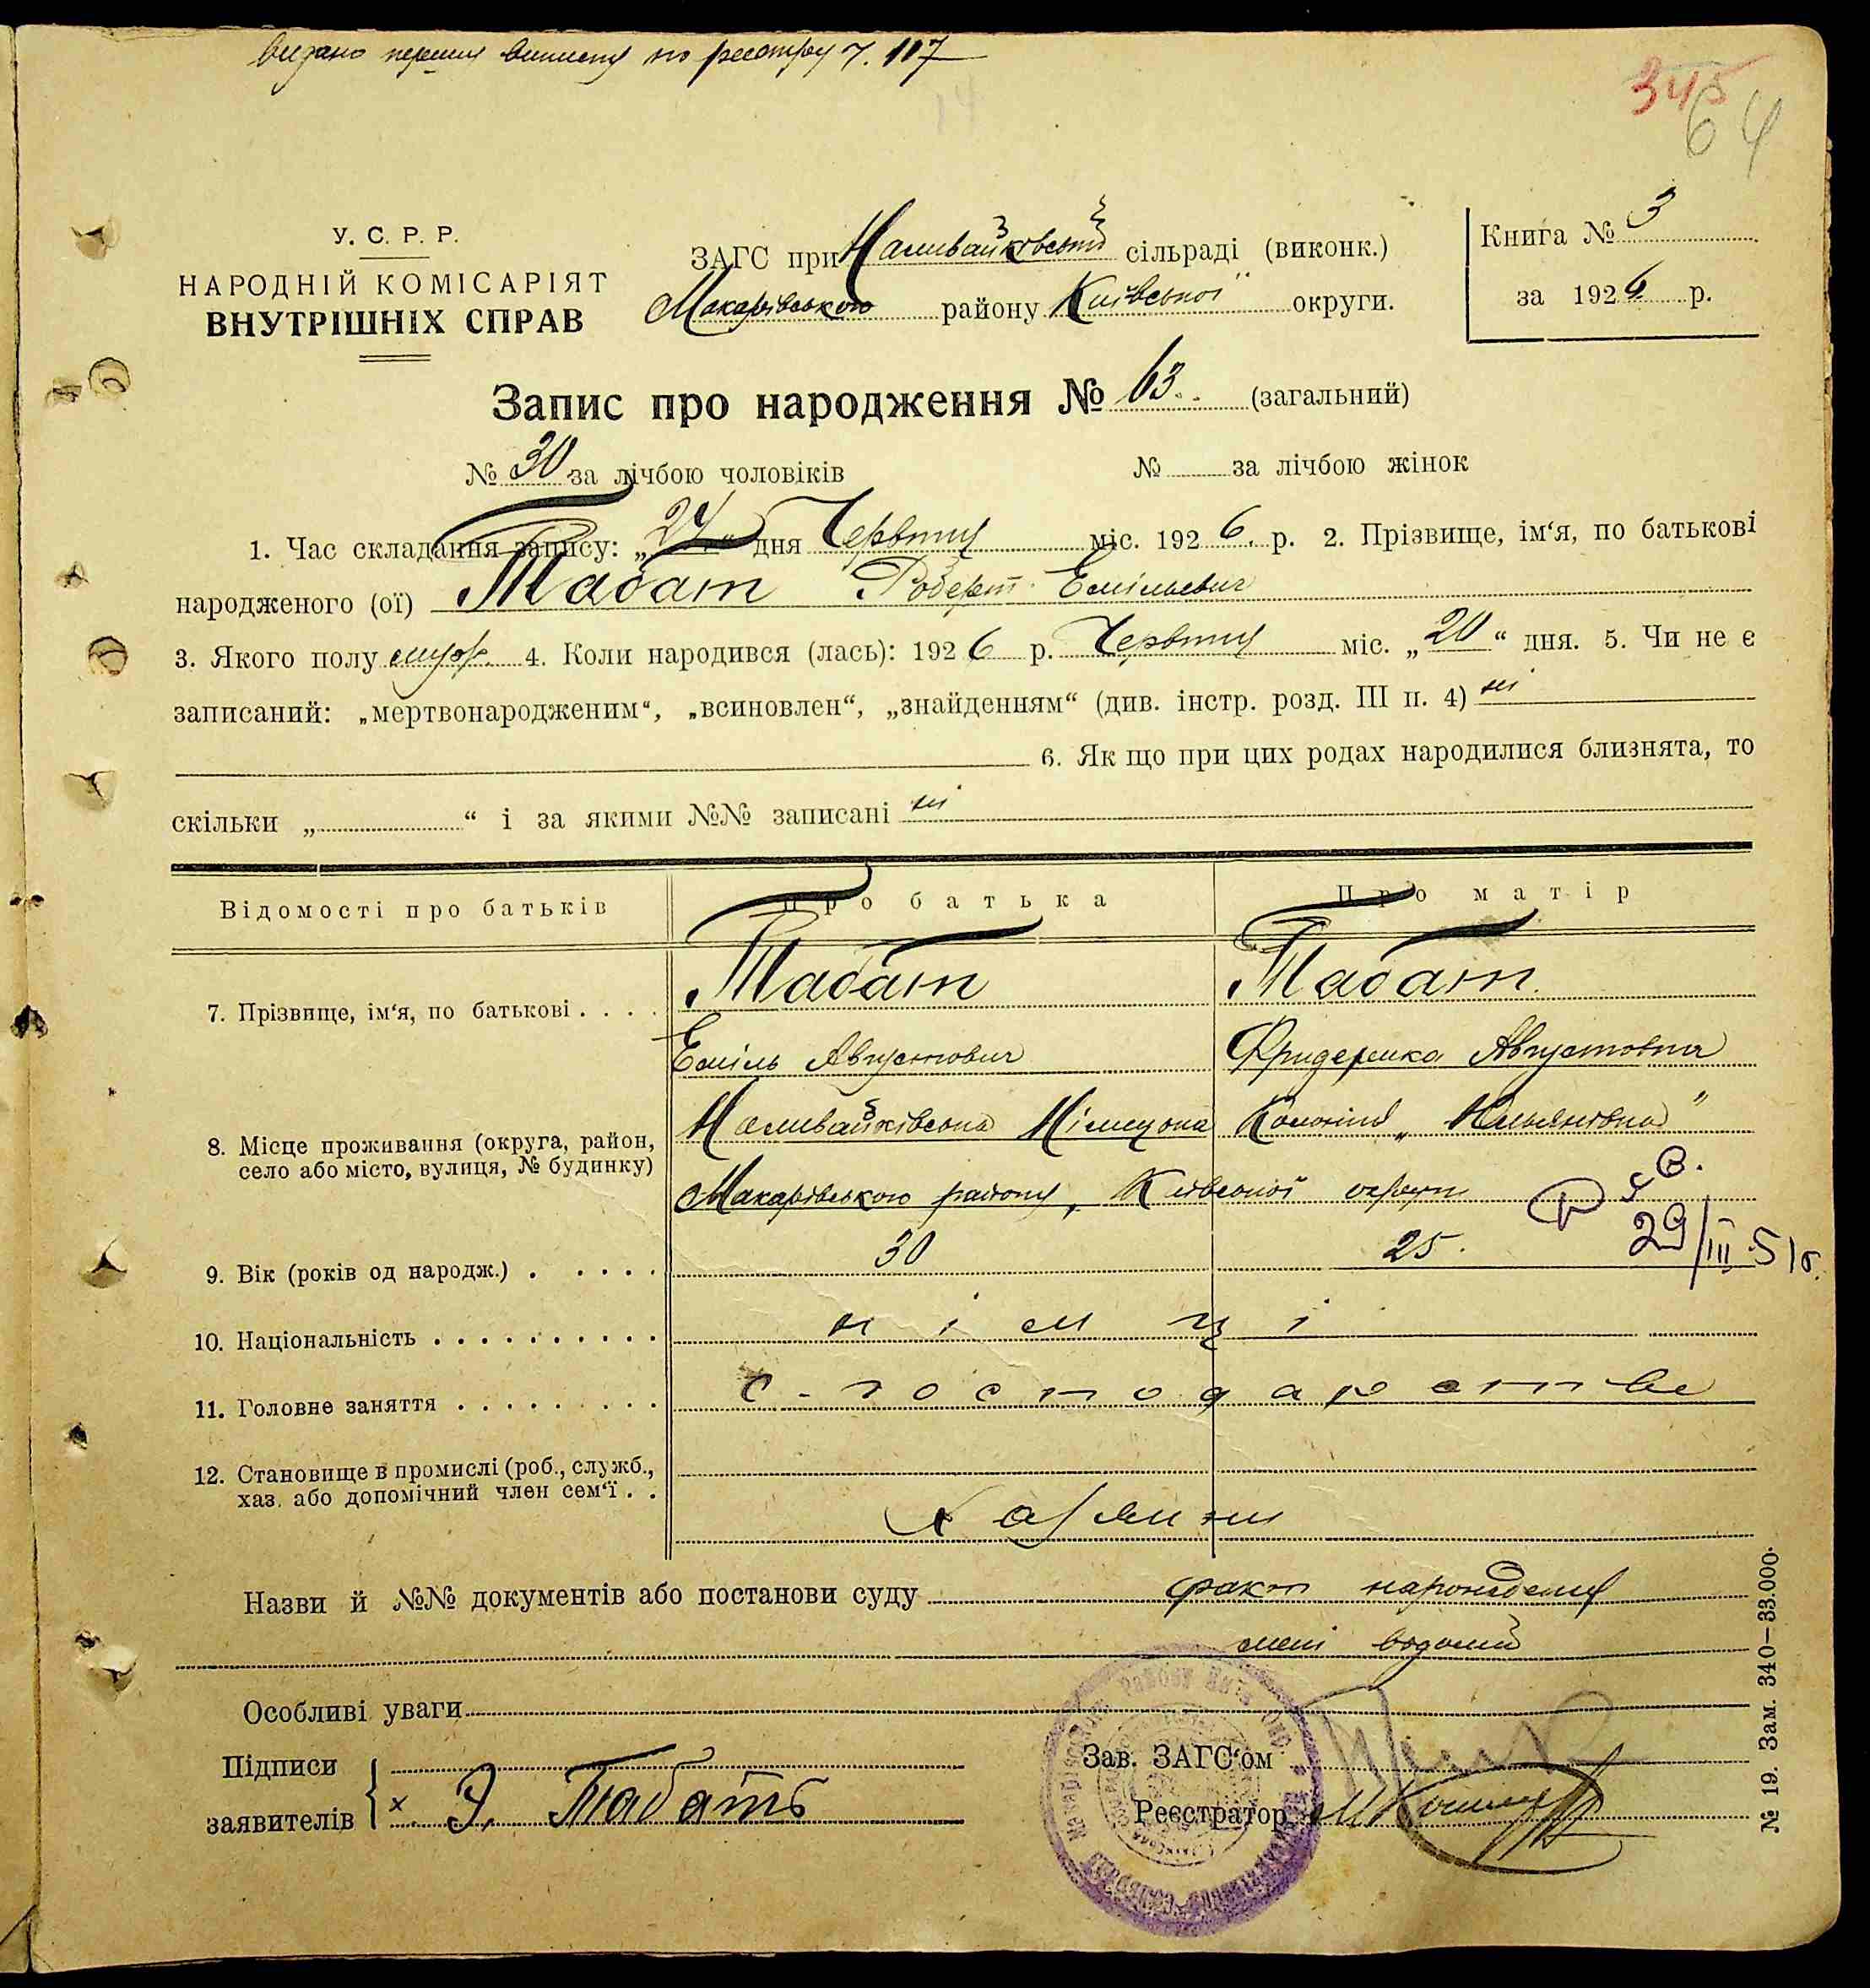 видано першу виписку по реєстру ч. 117
345
64
У. С. Р. Р.
НАРОДНІЙ КОМІСАРІЯТ
ВНУТРІШНІХ СПРАВ
ЗАГС при Наливайківській сільраді (виконк.)
Макарівського району Київської округи.
Книга № 3
за 1926 р.
Запис про народження № 63. (загальний)
№ 30 за лічбою чоловіків № за лічбою жінок
1. Час складання запису: „24“ дня Червня міс. 1926. р. 2. Прізвище, ім‘я, по батькові
народженого (ої) Табат Роберт Емільевич
3. Якого полу муж. 4. Коли народився (лась): 1926 р. Червня міс. „20“ дня. 5. Чи не є
записаний: „мертвонародженим“, „всиновлен“, „знайденням“ (див. інстр. розд. III п. 4) ні
6. Як що при цих родах народилися близнята, то
скільки „ “ і за якими №№ записані ні
Відомості про батьків Про батька Про матір
7. Прізвище, ім‘я, по батькові . . . . Табат Табат
Еміль Августович Фридерика Августовна
8. Місце проживання (округа, район,
село або місто, вулиця, № будинку)
Наливайківська Німецька Колонія „ "
Макарівського району, Київської округи
29/III 51 г.
9. Вік (років од народж.) . . . . . 30 25.
10. Національність . . . . . . . . . . німці
11. Головне заняття . . . . . . . . . с-господарство
12. Становище в промислі (роб., служб.,
хаз. або допомічний член сем‘ї . .
Хазяини
Назви й №№ документів або постанови суду факт народження
мені відомий
Особливі уваги
Підписи
заявителів × Э. Табатъ
Зав. ЗАГС‘ом
Реєстратор
№ 19. Зам. 340—33.000.